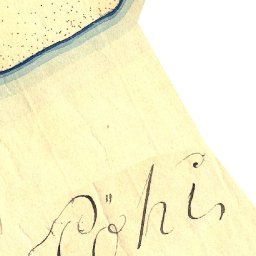 Pöhi